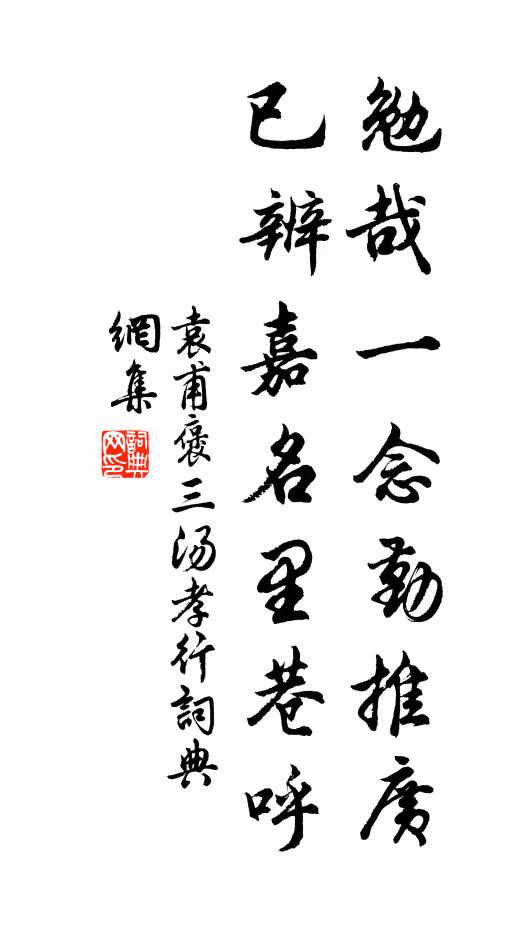 勉哉一念勤推廣
已辨嘉名里巷呼
袁甫褒三湯孝行詞典
網集
詞典網印